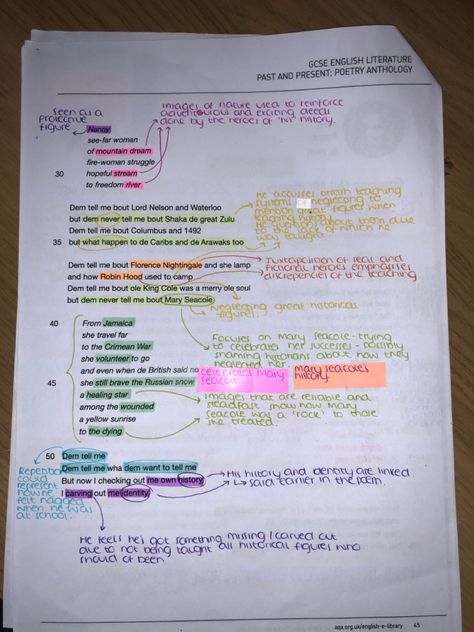 GCSE ENGLISH LITERATURE
PAST AND PRESENT: POETRY ANTHOLOGY
Seen as a
protective
figure
Images of nature used to reinforce
adventurous and exciting deeds
done by the heroes of "his" history.
Nanny
see-far woman
of mountain dream
fire-woman struggle
30 hopeful stream
to freedom river
Dem tell me bout Lord Nelson and Waterloo
but dem never tell me bout Shaka de great Zulu
Dem tell me bout Columbus and 1492
35 but what happen to de Caribs and de Arawaks too
He accuses British teaching
system of neglecting to
mention great figures when
teaching history.
He questions them due
to the lack of which he
was taught
Dem tell me bout Florence Nightingale and she lamp
and how Robin Hood used to camp
Dem tell me bout ole King Cole was a merry ole soul
but dem never tell me bout Mary Seacole
Juxtaposition of real and
fictional heroes emphasises
discrepencies of the teaching
Neglecting great historical
figures.
40 From Jamaica
she travel far
to the Crimean War
she volunteer to go
and even when de British said no
45 she still brave the Russian snow
a healing star
among the wounded
a yellow sunrise
to the dying
Focuses on Mary Seacole - trying
to celebrate her successes - possibly
shaming historians about how they
neglected her.
celebrates Mary
Seacole
Mary Seacole's
history.
Images that are reliable and
steadfast show how Mary
Seacole was a 'rock' to those
she treated.
50 Dem tell me
Dem tell me wha dem want to tell me
But now I checking out me own history
I carving out me identity
Repetition
could
represent
how he
felt nagged
when he was
at school.
His history and identity are linked
said earlier in the poem.
He feels he's got something missing / carved out
due to not being taught all historical figures who
should of been
aqa.org.uk/english-e-library 45